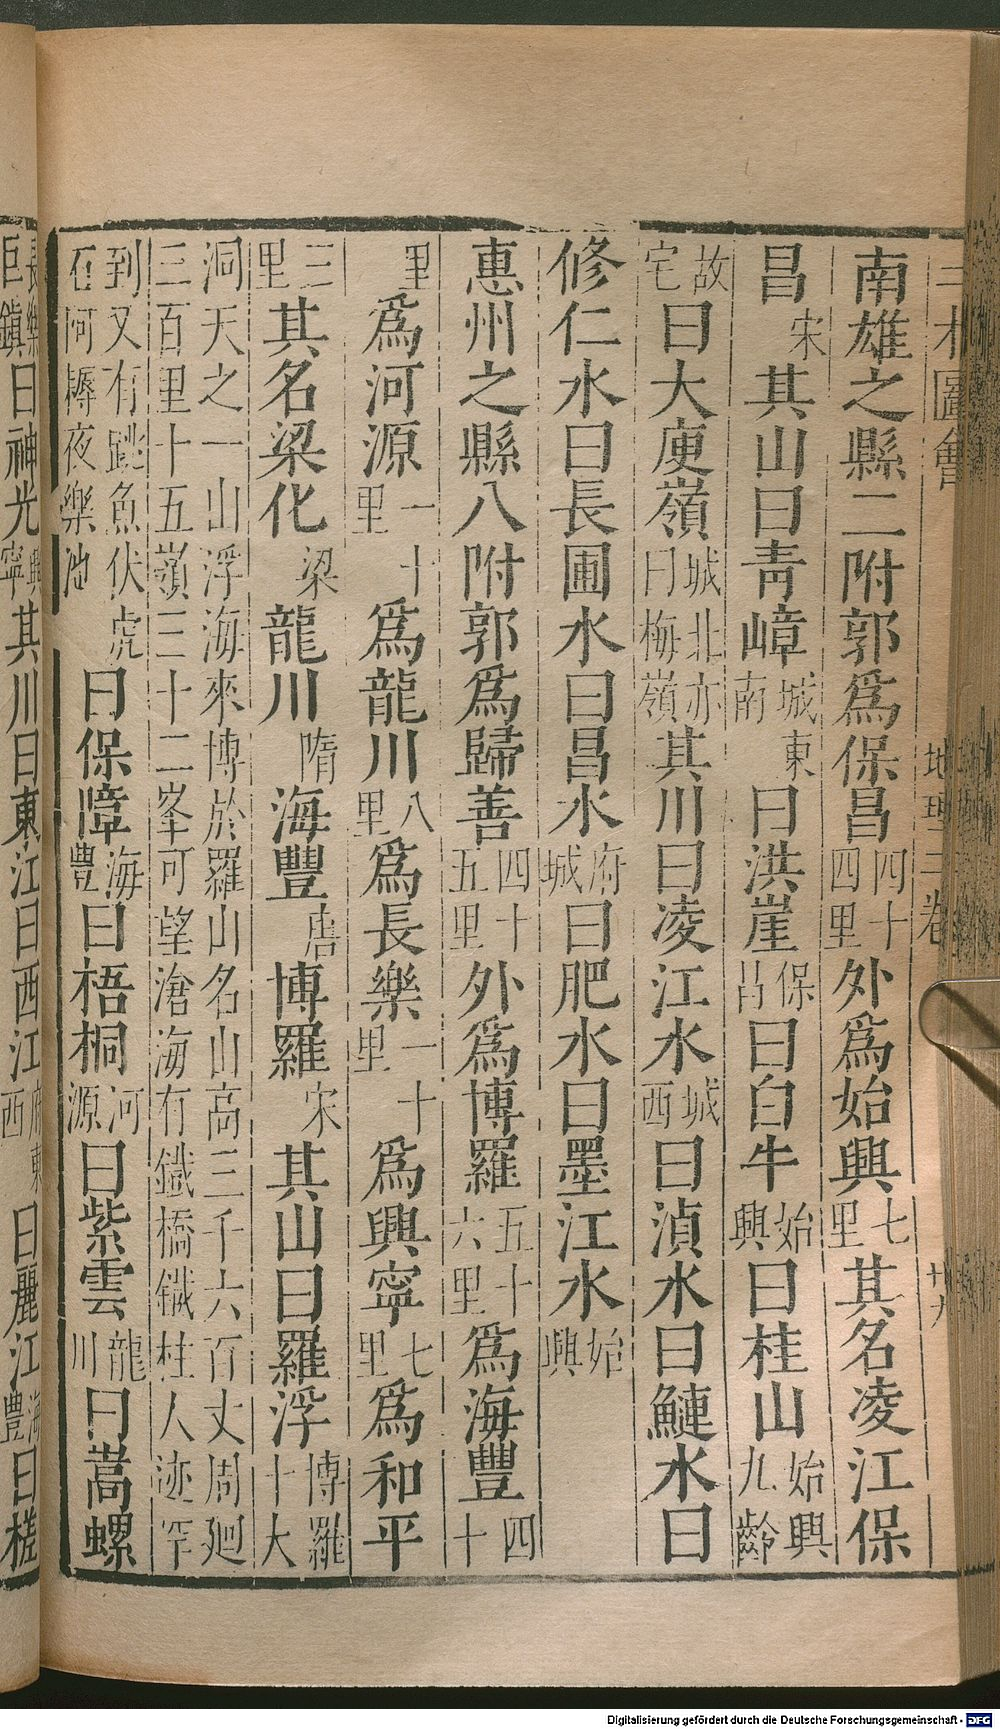 三才圖會 地理三卷 廿九
南雄之縣二附郭爲保昌四十四里外爲始興七里其名凌江保
昌宋其山曰青嶂城東南曰洪崖保昌曰白牛始興曰桂山始興九齡
故宅曰大庾嶺城北亦曰梅嶺其川曰凌江水城西曰湞水曰鰱水曰
修仁水曰長圃水曰昌水府城曰肥水曰墨江水始興
惠州之縣八附郭爲歸善四十五里外爲博羅五十六里爲海豐四十
里爲河源一十里爲龍川八里爲長樂一十里爲興寧七里爲和平
三里其名梁化梁龍川隋海豐唐博羅宋其山曰羅浮博羅十大
洞天之一山浮海來博於羅山名山高三千六百丈周廻
三百里十五嶺三十二峯可望滄海有鐵橋鐵柱人迹罕
到又有跳魚伏虎石阿耨夜樂池曰保障海豐曰梧桐河源曰紫雲龍川曰嵩螺
長樂巨鎮曰神光興寧其川曰東江曰西江府東西曰麗江海豐曰槎
Digitalisierung gefördert durch die Deutsche Forschungsgemeinschaft - DFG